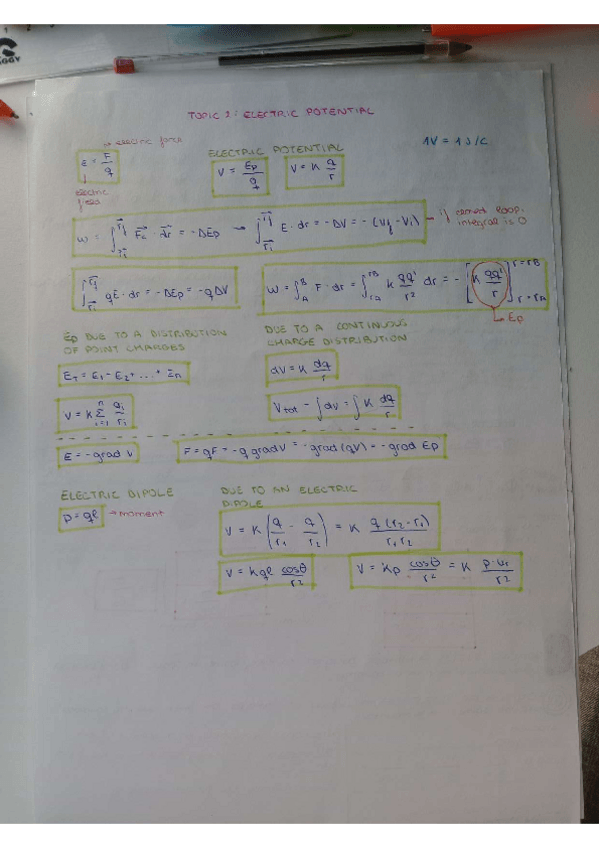 TOPIC 2: ELECTRIC POTENTIAL
→ electric force
E = F/q
electric field
ELECTRIC POTENTIAL
V = Ep/q
V = K q/r
1V = 1 J/C
W = ∫_{r⃗i}^{r⃗f} F⃗e · dr⃗ = -ΔEp → ∫_{r⃗i}^{r⃗f} E · dr = -ΔV = -(Vf - Vi) → if closed loop, integral is 0
∫_{r⃗i}^{r⃗f} qE · dr = -ΔEp = -qΔV
W = ∫_A^B F · dr = ∫_{rA}^{rB} K qq'/r² dr = -[K qq'/r]_{r=rA}^{r=rB}
→ Ep
Ep DUE TO A DISTRIBUTION
OF POINT CHARGES
ET = E1 - E2 + ... + En
V = K Σ_{i=1}^{n} qi/ri
DUE TO A CONTINUOUS
CHARGE DISTRIBUTION
dV = K dq/r
Vtot = ∫dV = ∫ K dq/r
E = -grad V
F = qF = -q grad V = -grad (qV) = -grad Ep
ELECTRIC DIPOLE
p = ql → moment
DUE TO AN ELECTRIC
DIPOLE
V = K (q/r1 - q/r2) = K q(r2 - r1)/r1r2
V = Kql cosθ/r²
V = Kp cosθ/r² = K p·ur/r²